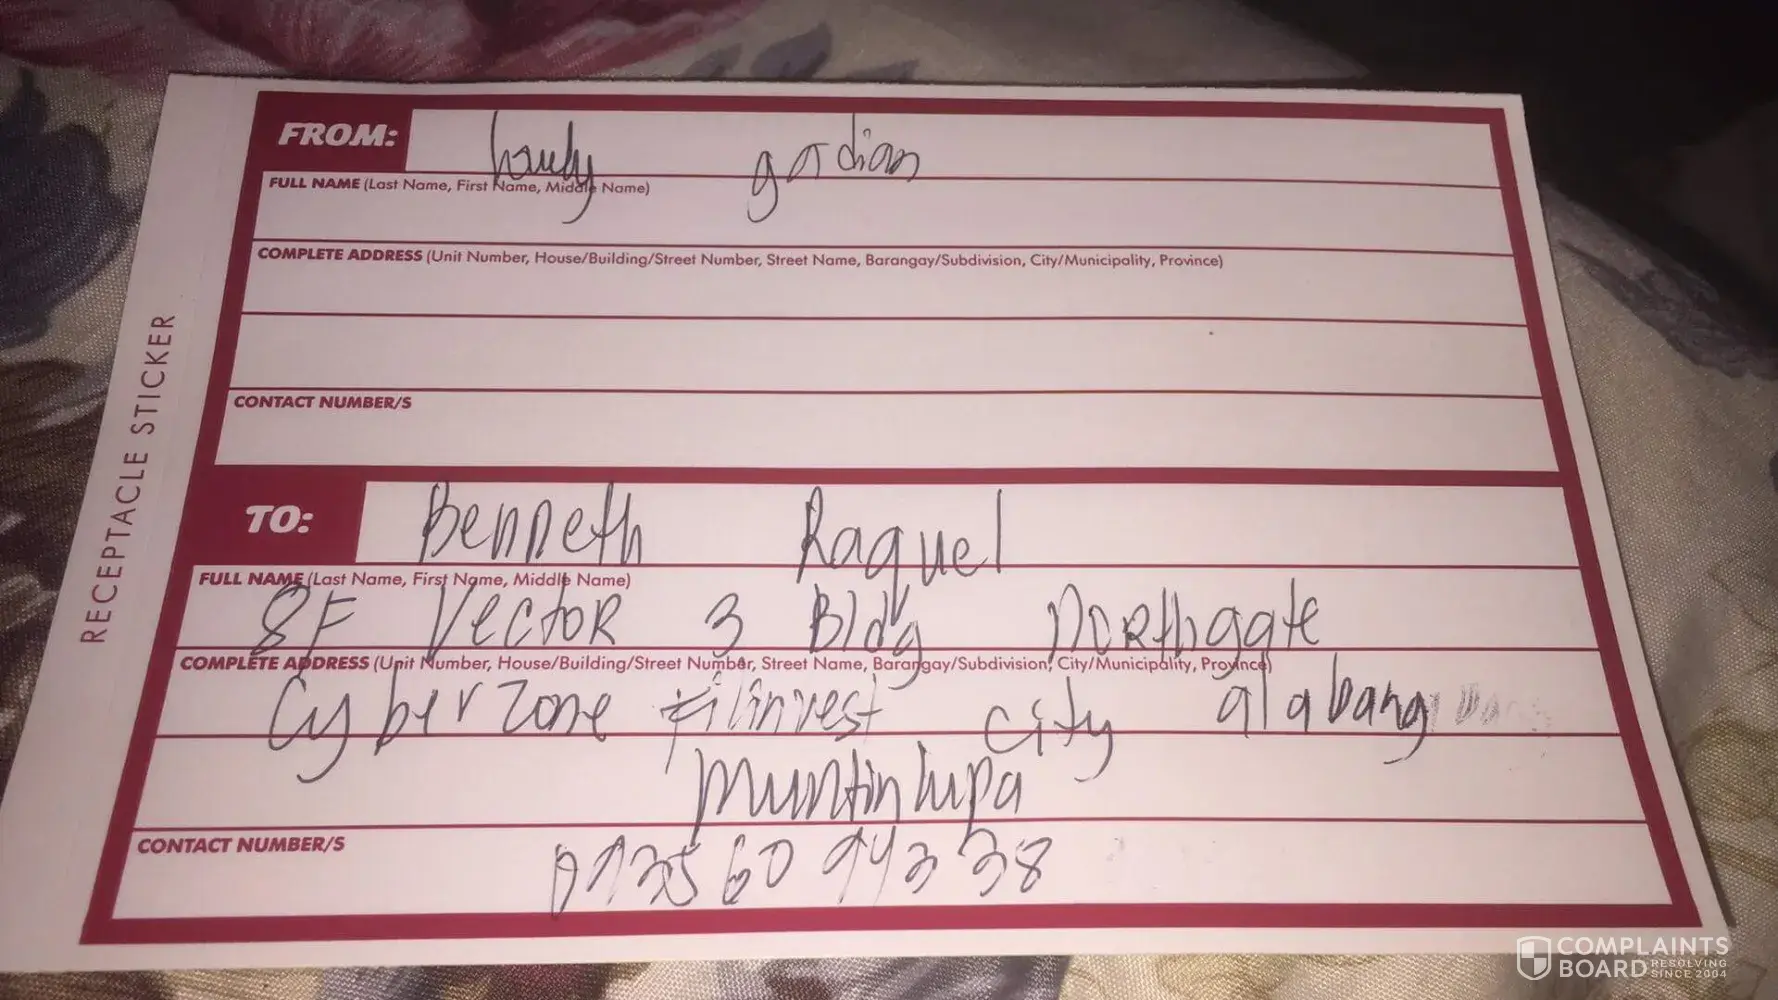 FROM:
FULL NAME (Last Name, First Name, Middle Name)
COMPLETE ADDRESS (Unit Number, House/Building/Street Number, Street Name, Barangay/Subdivision, City/Municipality, Province)
CONTACT NUMBER/S
RECEPTACLE STICKER
TO: Benneth Raquel
FULL NAME (Last Name, First Name, Middle Name)
8F Vector 3 Bldg Northgate
COMPLETE ADDRESS (Unit Number, House/Building/Street Number, Street Name, Barangay/Subdivision, City/Municipality, Province)
Cyberzone filinvest city alabang
muntinlupa
CONTACT NUMBER/S
COMPLAINTS
BOARD RESOLVING SINCE 2004